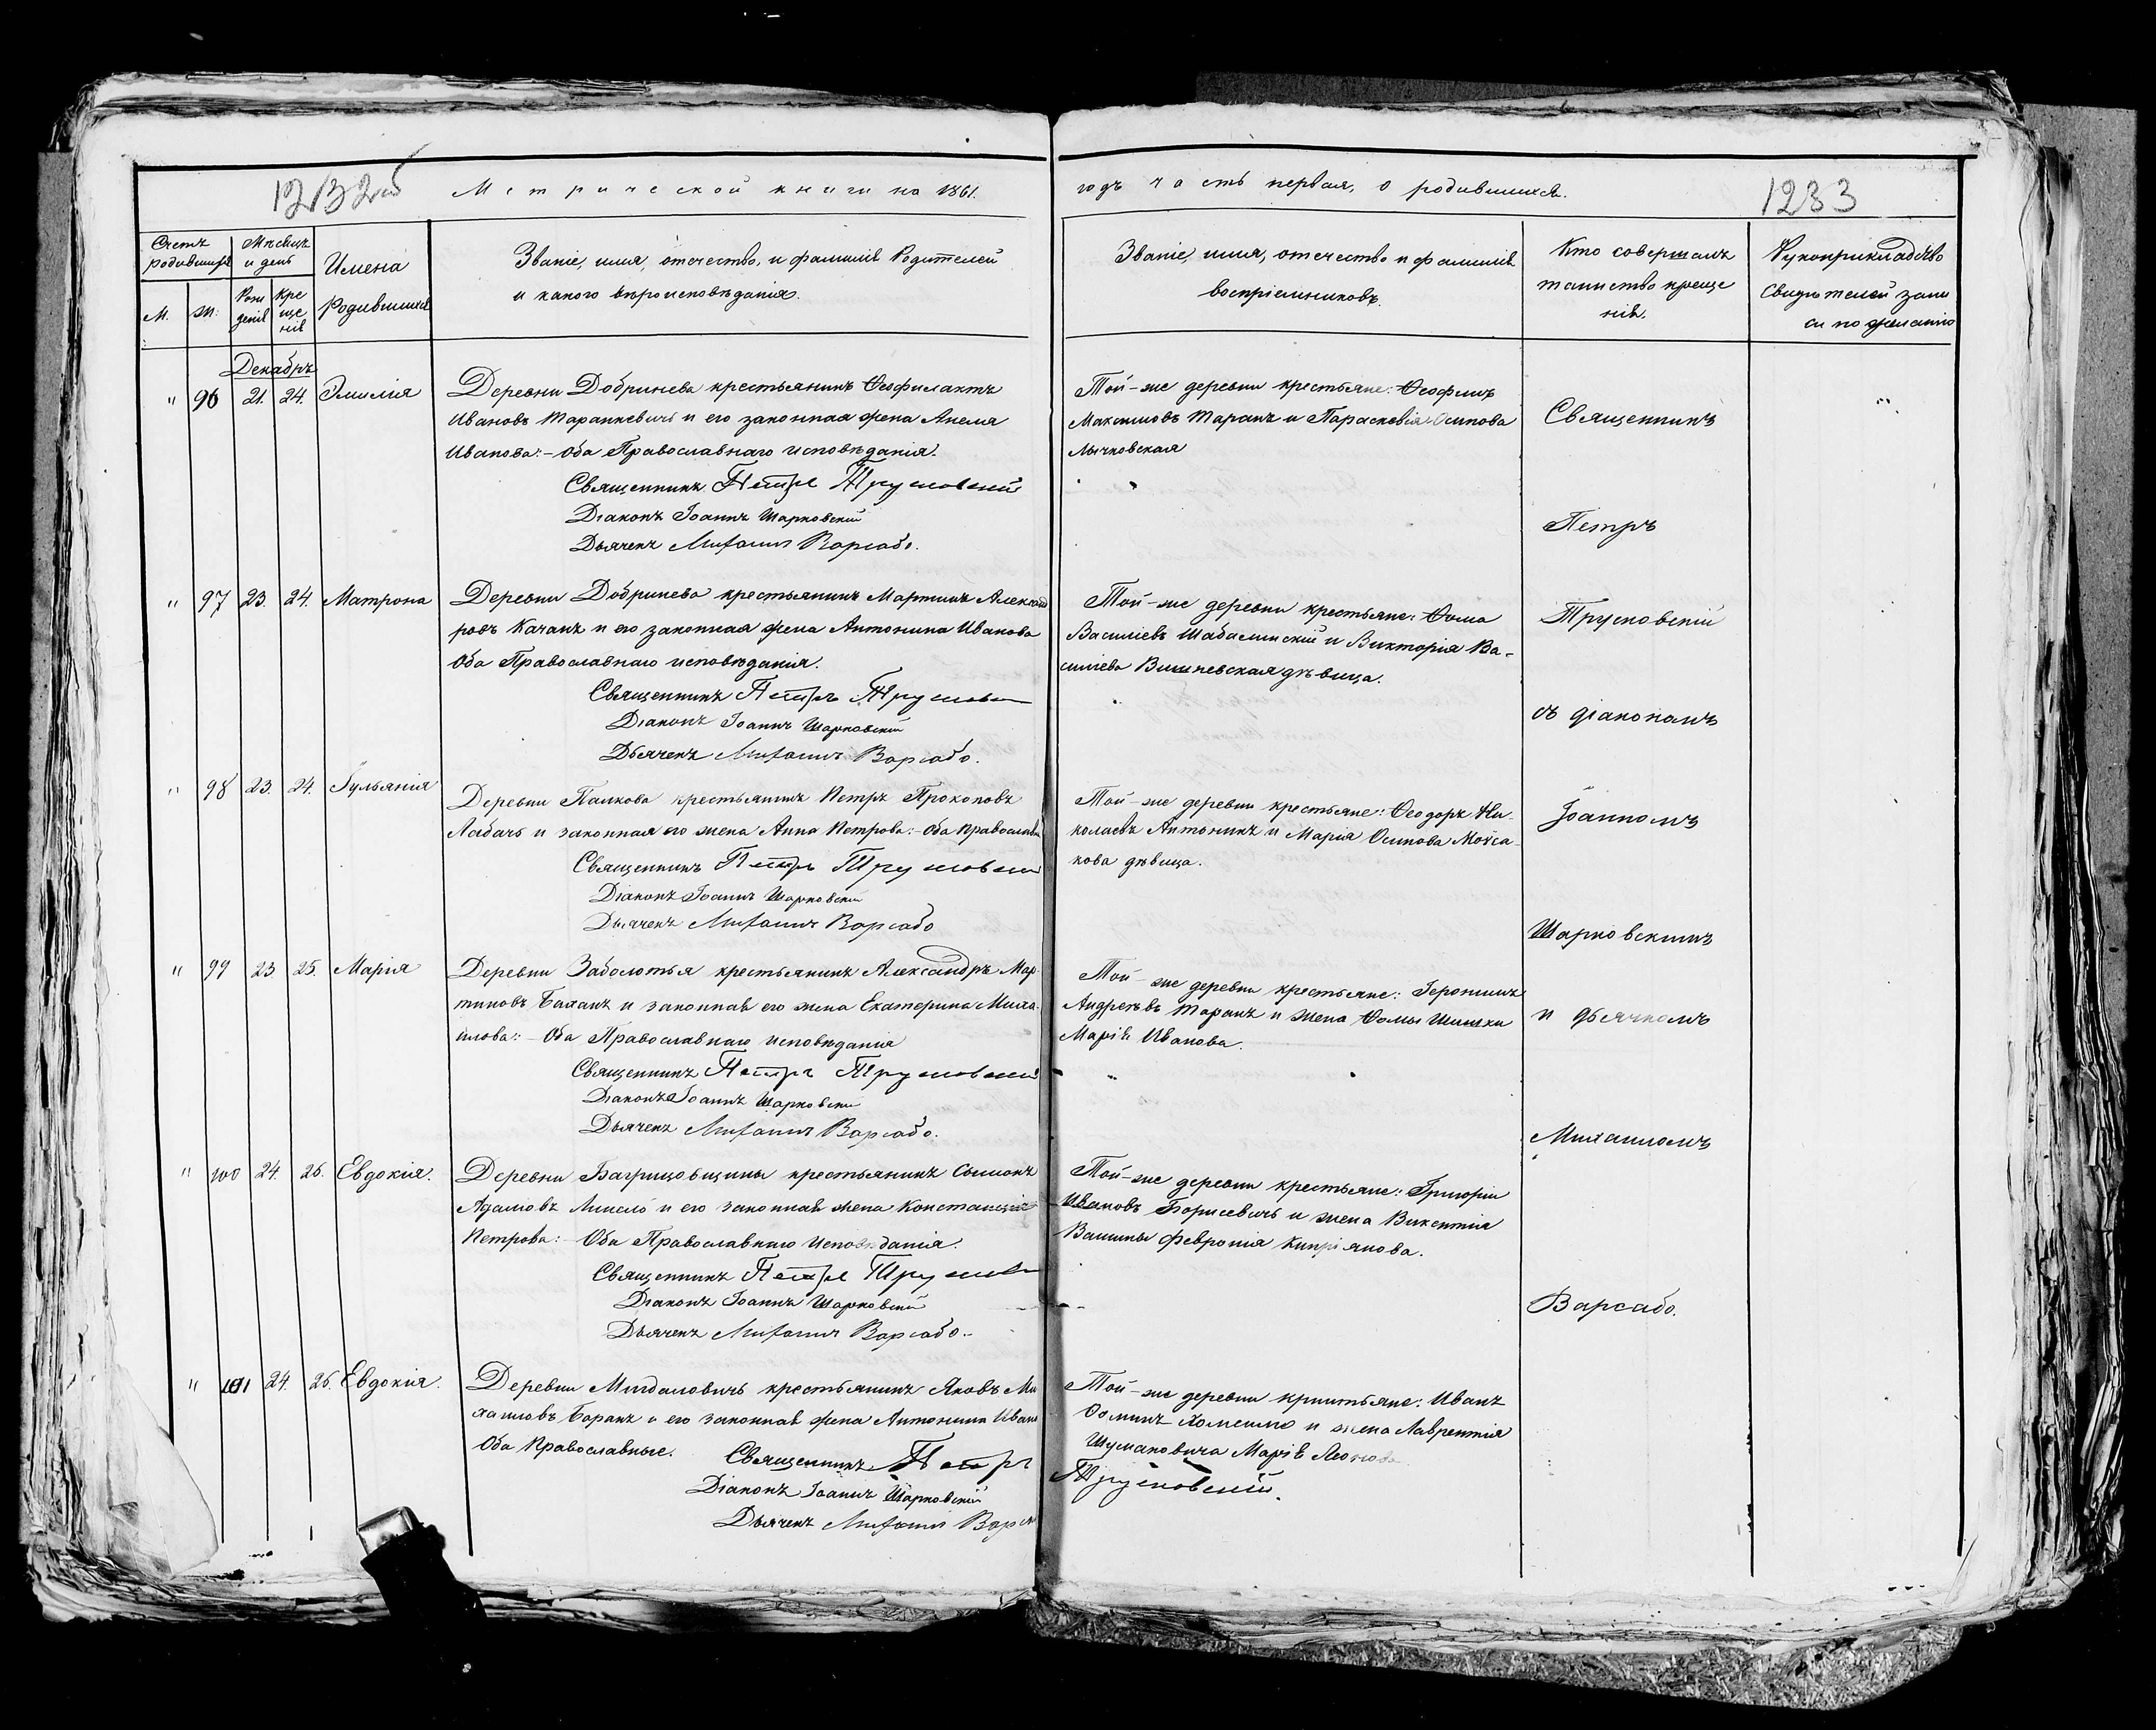 Метрической книги на 1861.
годъ часть первая, о родившихся.
1233
Счетъ родившихся
Мѣсяцъ и день
Имена родившихся
Званіе, имя, отчество, и фамилія Родителей
и какого вѣроисповѣданія.
Званіе, имя, отчество и фамилія
воспріемниковъ.
Кто совершалъ
таинство креще
нія.
Рукоприкладство
Свидѣтелей запи
си по желанію
М.
Ж.
Рож
денія
Кре
ще
нія
Декабрь
" 96 21. 24. Эмилія
Деревни Добринева крестьянинъ Ѳеофилактъ
Ивановъ Таранкевичъ и его законная жена Анеля
Иванова:- Оба Православнаго исповѣданія.
Священникъ Петръ Трусковскій
Діаконъ Іоаннъ Шарковскій
Дьячекъ Михаилъ Варсабо.
Той-же деревни крестьяне: Ѳеофилъ
Максимовъ Таранъ и Параскевія Осипова
Лычковская
Священникъ
Петръ
" 97 23. 24. Матрона
Деревни Добринева крестьянинъ Мартинъ Александ
ровъ Качанъ и его законная жена Антонина Иванова
Оба Православнаго исповѣданія.
Священникъ Петръ Трусков
Діаконъ Іоаннъ Шарковскій
Дьячекъ Михаилъ Варсабо.
Той-же деревни крестьяне: Ѳома
Василіевъ Шабалинскій и Викторія Ва-
силіева Вишневская дѣвица.
Трусковскій
съ діакономъ
" 98 23. 24. Іульянія
Деревни Палкова крестьянинъ Петръ Прокоповъ
Лабачъ и законная его жена Анна Петрова:- Оба Православн
Священникъ Петръ Трусковскій
Діаконъ Іоаннъ Шарковскій
Дьячекъ Михаилъ Варсабо
Той-же деревни крестьяне: Ѳеодоръ Ни-
колаевъ Антоникъ и Марія Осипова
кова дѣвица.
Іоанномъ
Шарковскимъ
" 99 23 25. Марія
Деревни Заболотья крестьянинъ Александръ Мар-
тиновъ Балахъ и законная его жена Екатерина Миха-
илова:- Оба Православнаго исповѣданія
Священникъ Петръ Трусковскій
Діаконъ Іоаннъ Шарковскій
Дьячекъ Михаилъ Варсабо.
Той-же деревни крестьяне: Іеронимъ
Андреевъ Таранъ и жена Ѳомы Шишки
Марія Иванова.
и дьячкомъ
Михаиломъ
" 100 24. 26. Евдокія.
Деревни Багрицовщины крестьянинъ Сымонъ
Адамовъ и его законная жена Констанція
Петрова:- Оба Православнаго исповѣданія.
Священникъ Петръ Трусков
Діаконъ Іоаннъ Шарковскій
Дьячекъ Михаилъ Варсабо.
Той-же деревни крестьяне: Григорій
Ивановъ Борисевичъ и жена Викентія
Вашины Февронія Кипріянова.
Варсабо.
" 101 24. 26. Евдокія.
Деревни Мигдаловичъ крестьянинъ Яковъ Ми
хаиловъ Баранъ и его законная жена Антонина Иван
Оба Православные.
Священникъ Петръ
Трусковскій.
Діаконъ Іоаннъ Шарковскій
Дьячекъ Михаилъ Варса
Той-же деревни крестьяне: Иванъ
Ѳоминъ и жена Лаврентія
Шумановича Марія